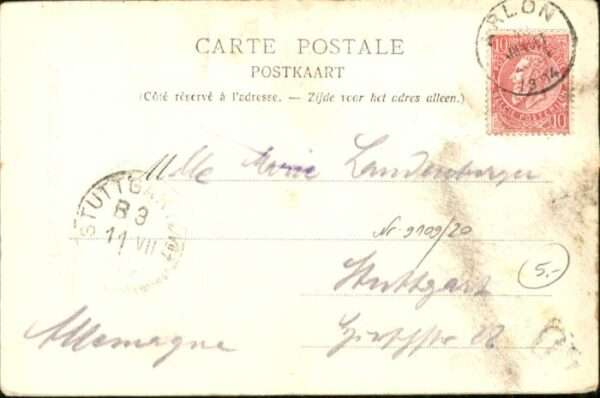 CARTE POSTALE
POSTKAART
(Côté réservé à l'adresse. — Zijde voor het adres alleen.)
ARLON
10 10
BELGIE POSTERIJEN
Mlle Marie Landenberger
STUTTGART
B 3
11 VII
Nr. 9109/20
5.-
Stuttgart
Hirschstr 22
Allemagne